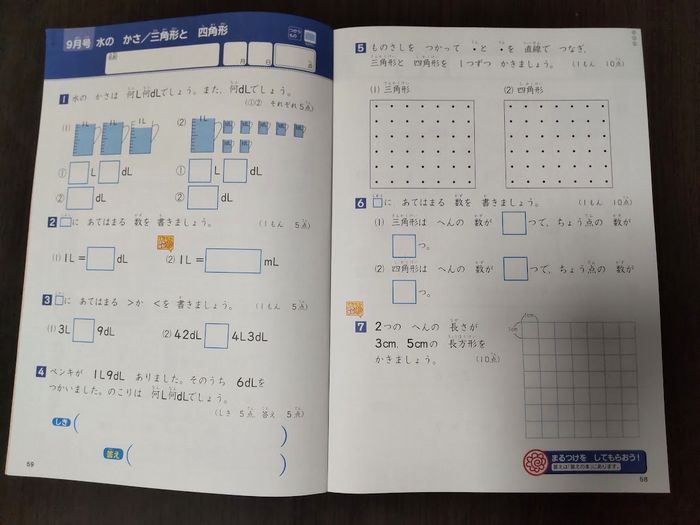 9月号 水の かさ/三角形と 四角形
名前
月 日
点
1 水の かさは 何L何dLでしょう。また、何dLでしょう。
(①② それぞれ5点)
(1) 1L 1L 1L (2) 1L
① L dL ① L dL
② dL ② dL
2 □に あてはまる 数を 書きましょう。 (1もん 5点)
(1) 1L= dL (2) 1L= mL
3 □に あてはまる >か <を 書きましょう。 (1もん 5点)
(1) 3L 9dL (2) 42dL 4L3dL
4 ペンキが 1L9dL ありました。そのうち 6dLを
つかいました。のこりは 何L何dLでしょう。
(しき 5点、答え 5点)
しき ( )
答え ( )
59
5 ものさしを つかって ・と ・を 直線で つなぎ、
三角形と 四角形を 1つずつ かきましょう。
(1もん 10点)
(1) 三角形 (2) 四角形
6 □に あてはまる 数を 書きましょう。 (1もん 10点)
(1) 三角形は へんの 数が つで、ちょう点の 数が
つ。
(2) 四角形は へんの 数が つで、ちょう点の 数が
つ。
7 2つの へんの 長さが
3cm、5cmの 長方形を
かきましょう。 (10点)
1cm
1cm
まるつけを してもらおう!
答えは「答えの本」にあります。
58